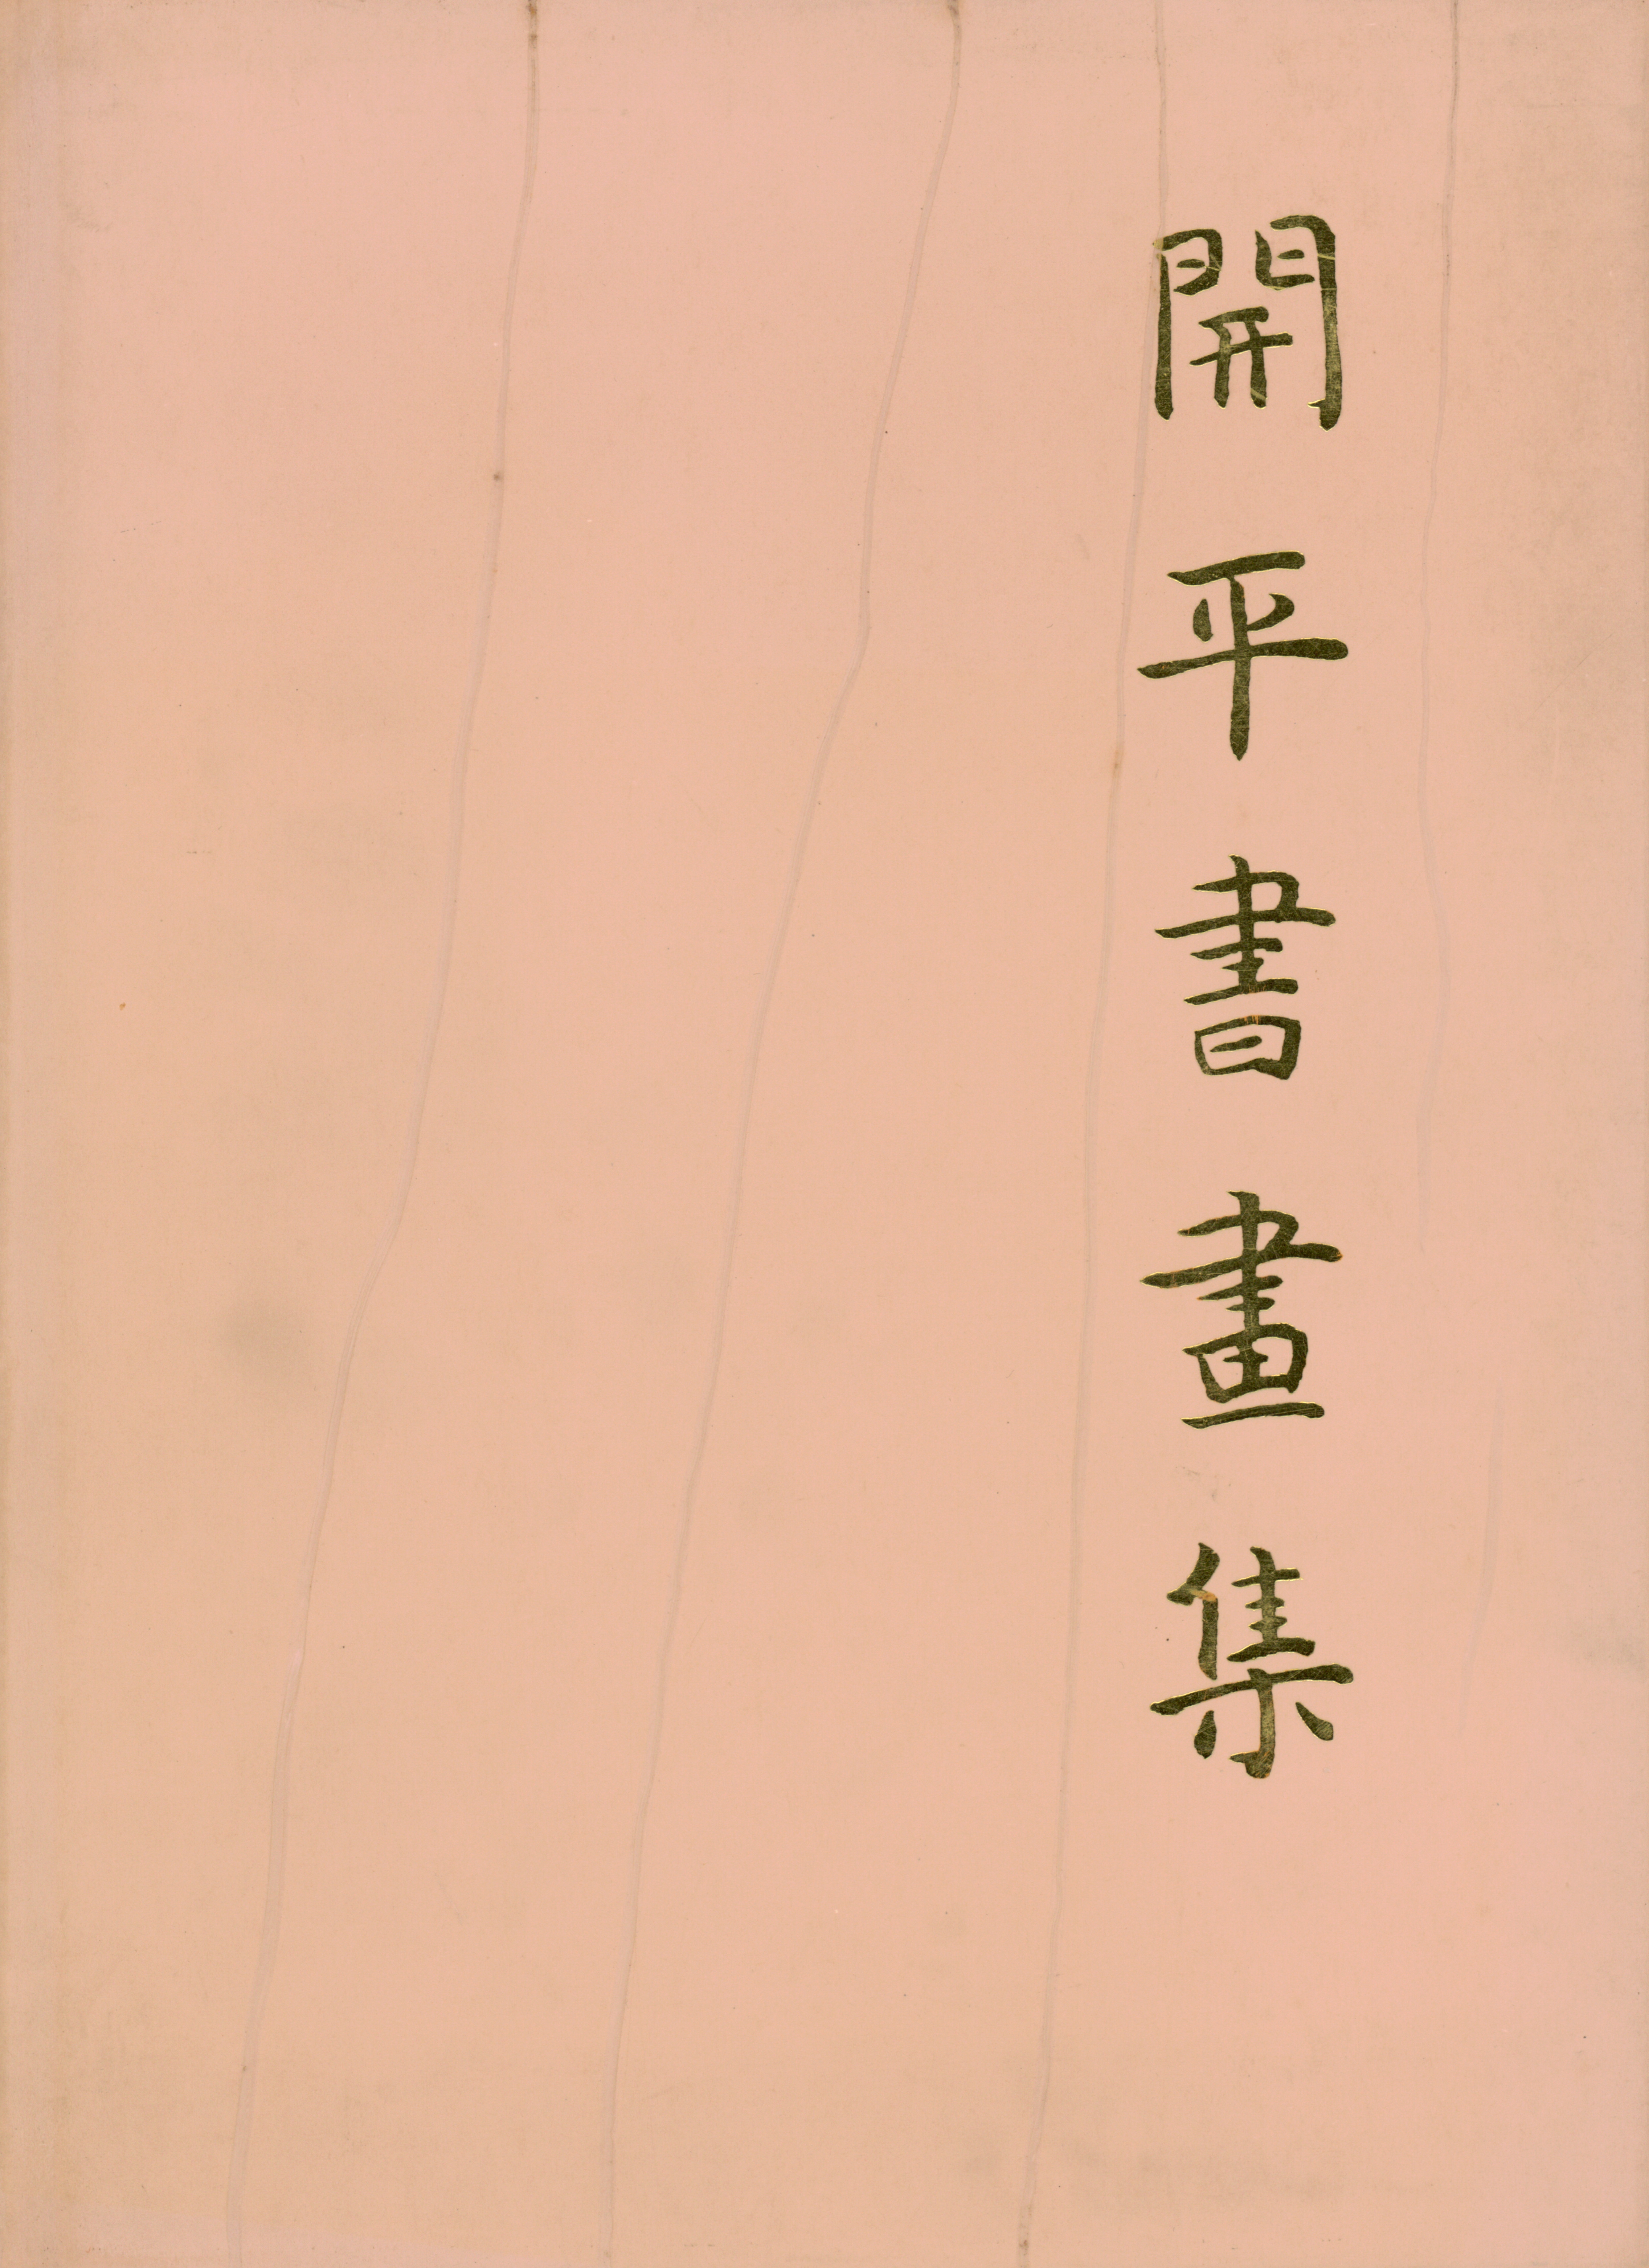 開平書畫集